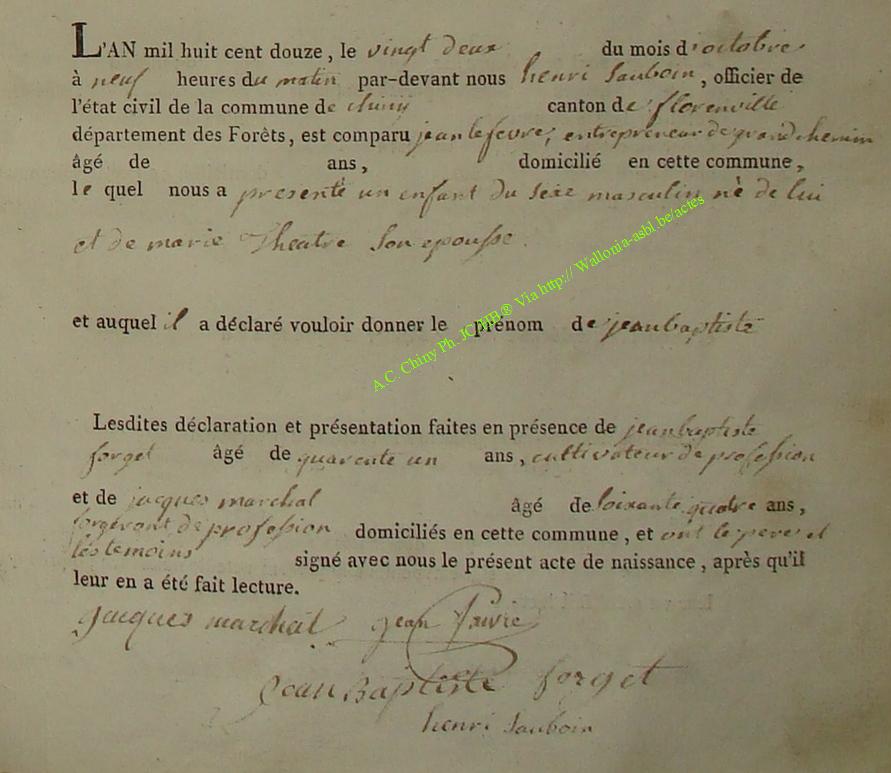 L'AN mil huit cent douze, le vingt deux du mois d'octobre
à neuf heures du matin par-devant nous henri Sauboin, officier de
l'état civil de la commune de chiny canton de florenville
département des Forêts, est comparu jean lefevre, entrepreneur de grand chemin
âgé de ans, domicilié en cette commune,
le quel nous a presenté un enfant du sexe masculin né de lui
et de marie Theatre Son epousse.
et auquel il a déclaré vouloir donner le prénom de jean baptiste
Lesdites déclaration et présentation faites en présence de jean baptiste
forget âgé de quarente un ans, cultivateur de profession
et de jacques marchal âgé de soixante quatre ans,
forgeront de profession domiciliés en cette commune, et ont le pere et
les temoins signé avec nous le présent acte de naissance, après qu'il
leur en a été fait lecture.
jacques marchal jean
jean Baptiste forget
henri Sauboin
A.C. Chiny Ph. JCHHB.® Via http:// Wallonia-asbl.be/actes